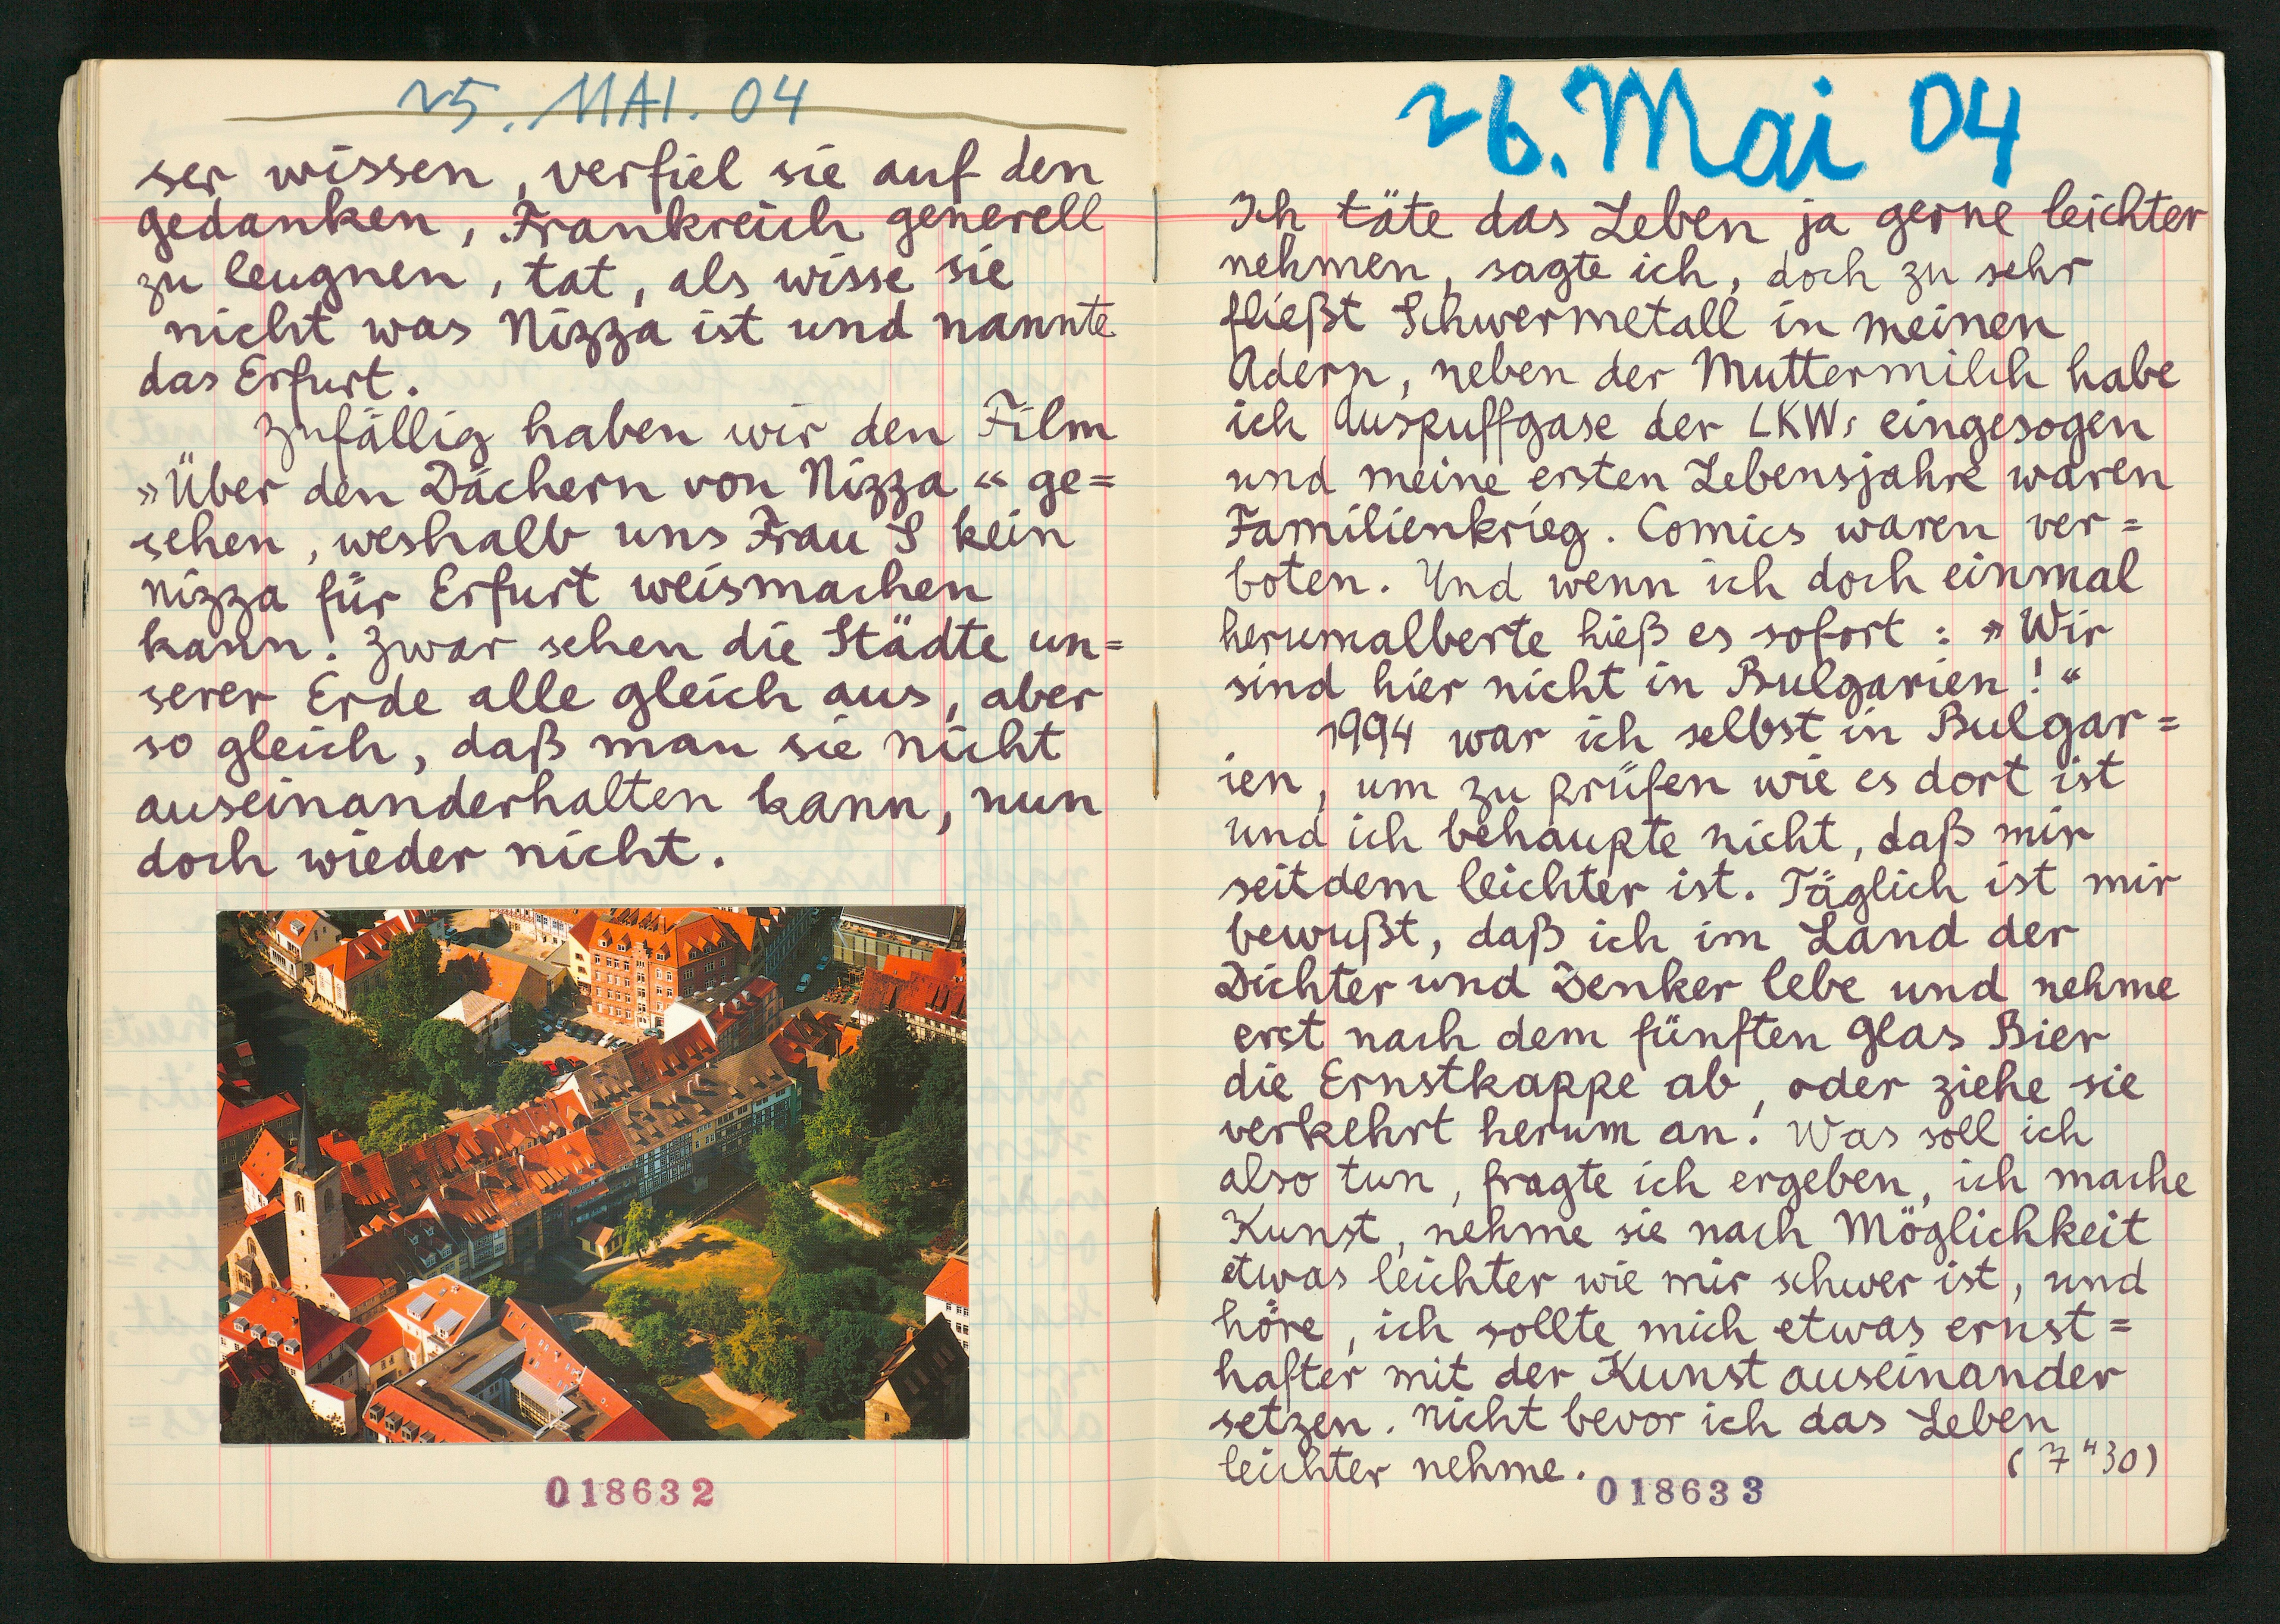 25. MAI. 04
ser wissen, verfiel sie auf den
gedanken, Frankreich generell
zu leugnen, tat, als wisse sie
nicht was Nizza ist und nannte
das Erfurt.
Zufällig haben wir den Film
»Über den Dächern von Nizza« ge=
sehen, weshalb uns Frau S kein
Nizza für Erfurt weismachen
kann. Zwar sehen die Städte un=
serer Erde alle gleich aus, aber
so gleich, daß man sie nicht
auseinanderhalten kann, nun
doch wieder nicht.
018632
26. Mai 04
Ich täte das Leben ja gerne leichter
nehmen, sagte ich, doch zu sehr
fließt Schwermetall in meinen
Adern, neben der Muttermilch habe
ich Auspuffgase der LKWs eingesogen
und meine ersten Lebensjahre waren
Familienkrieg. Comics waren ver=
boten. Und wenn ich doch einmal
herumalberte hieß es sofort: »Wir
sind hier nicht in Bulgarien!«
1994 war ich selbst in Bulgar=
ien, um zu prüfen wie es dort ist
und ich behaupte nicht, daß mir
seitdem leichter ist. Täglich ist mir
bewußt, daß ich im Land der
Dichter und Denker lebe und nehme
erst nach dem fünften Glas Bier
die Ernstkappe ab, oder ziehe sie
verkehrt herum an. Was soll ich
also tun, fragte ich ergeben, ich mache
Kunst, nehme sie nach Möglichkeit
etwas leichter wie mir schwer ist, und
höre, ich sollte mich etwas ernst=
hafter mit der Kunst auseinander
setzen. Nicht bevor ich das Leben
leichter nehme.
(7"30)
018633